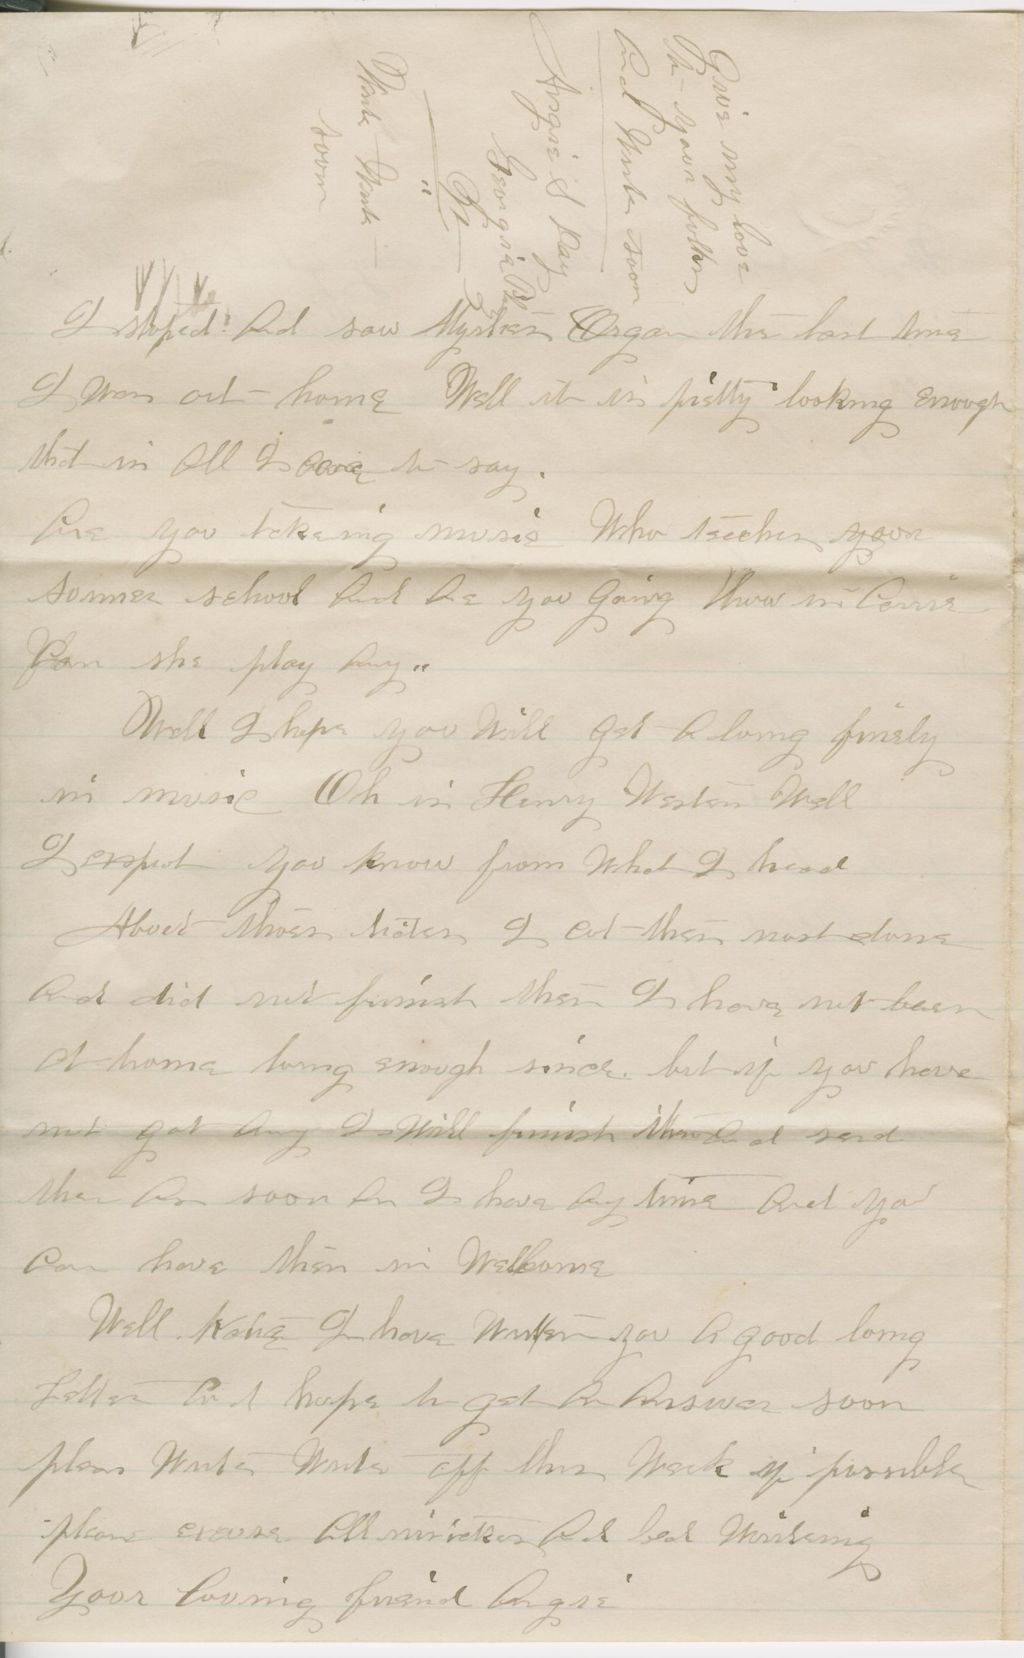 I stoped and saw Myrties Organ the last time
I was out home Well it is pretty looking enough
that is all I care to say.
Are you takeing music Who teaches your
sumer school And Are you going threw in
Can she play Any"
Well I hope you Will get A long finely
in music Oh is Henry Well
I expect you know from What I head
About them I cut them most done
And did not finish them I have not been
At home long enough since. but if you have
not got Any I Will finish them And send
them As soon As I have Any time And you
can have them in Wellcome
Well Katie I have Written you A good long
Letter And hope to get An Answer soon
pleas Write Write off this Week if possible
pleas excuse All mistakes And bad Writeing
Your loving friend Angie
Give my love
to your folks
And Write soon
Angie S Ray
Georgia
Write Write
soon